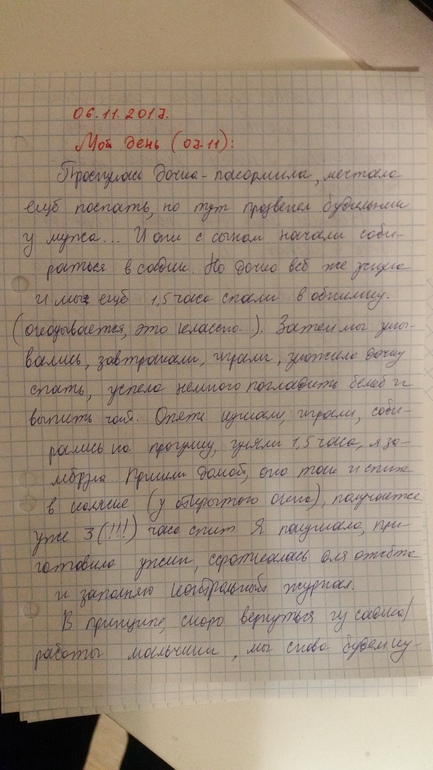 06.11.2017.
Мой день (07.11):
Проснулась дочка - покормила, мечтала
ещё поспать, но тут прозвенел будильник
у мужа... И они с сыном начали соби-
раться в садик. Но дочка всё же уснула
и мы ещё 1,5 часа спали в обнимку.
(оказывается, это классно). Затем мы умы-
вались, завтракали, играли, уложила дочку
спать, успела немного погладить бельё и
выпить чай. Опять кушали, играли, соби-
рались на прогулку, гуляли 1,5 часа, я за-
мёрзла. Пришли домой, она так и спит
в коляске (у открытого окна), получается
уже 3 (!!!) часа спит. Я покушала, при-
готовила ужин, для
и заполняю контрольный журнал.
В принципе, скоро вернуться из садика/
работы мальчики, мы снова будем ку-